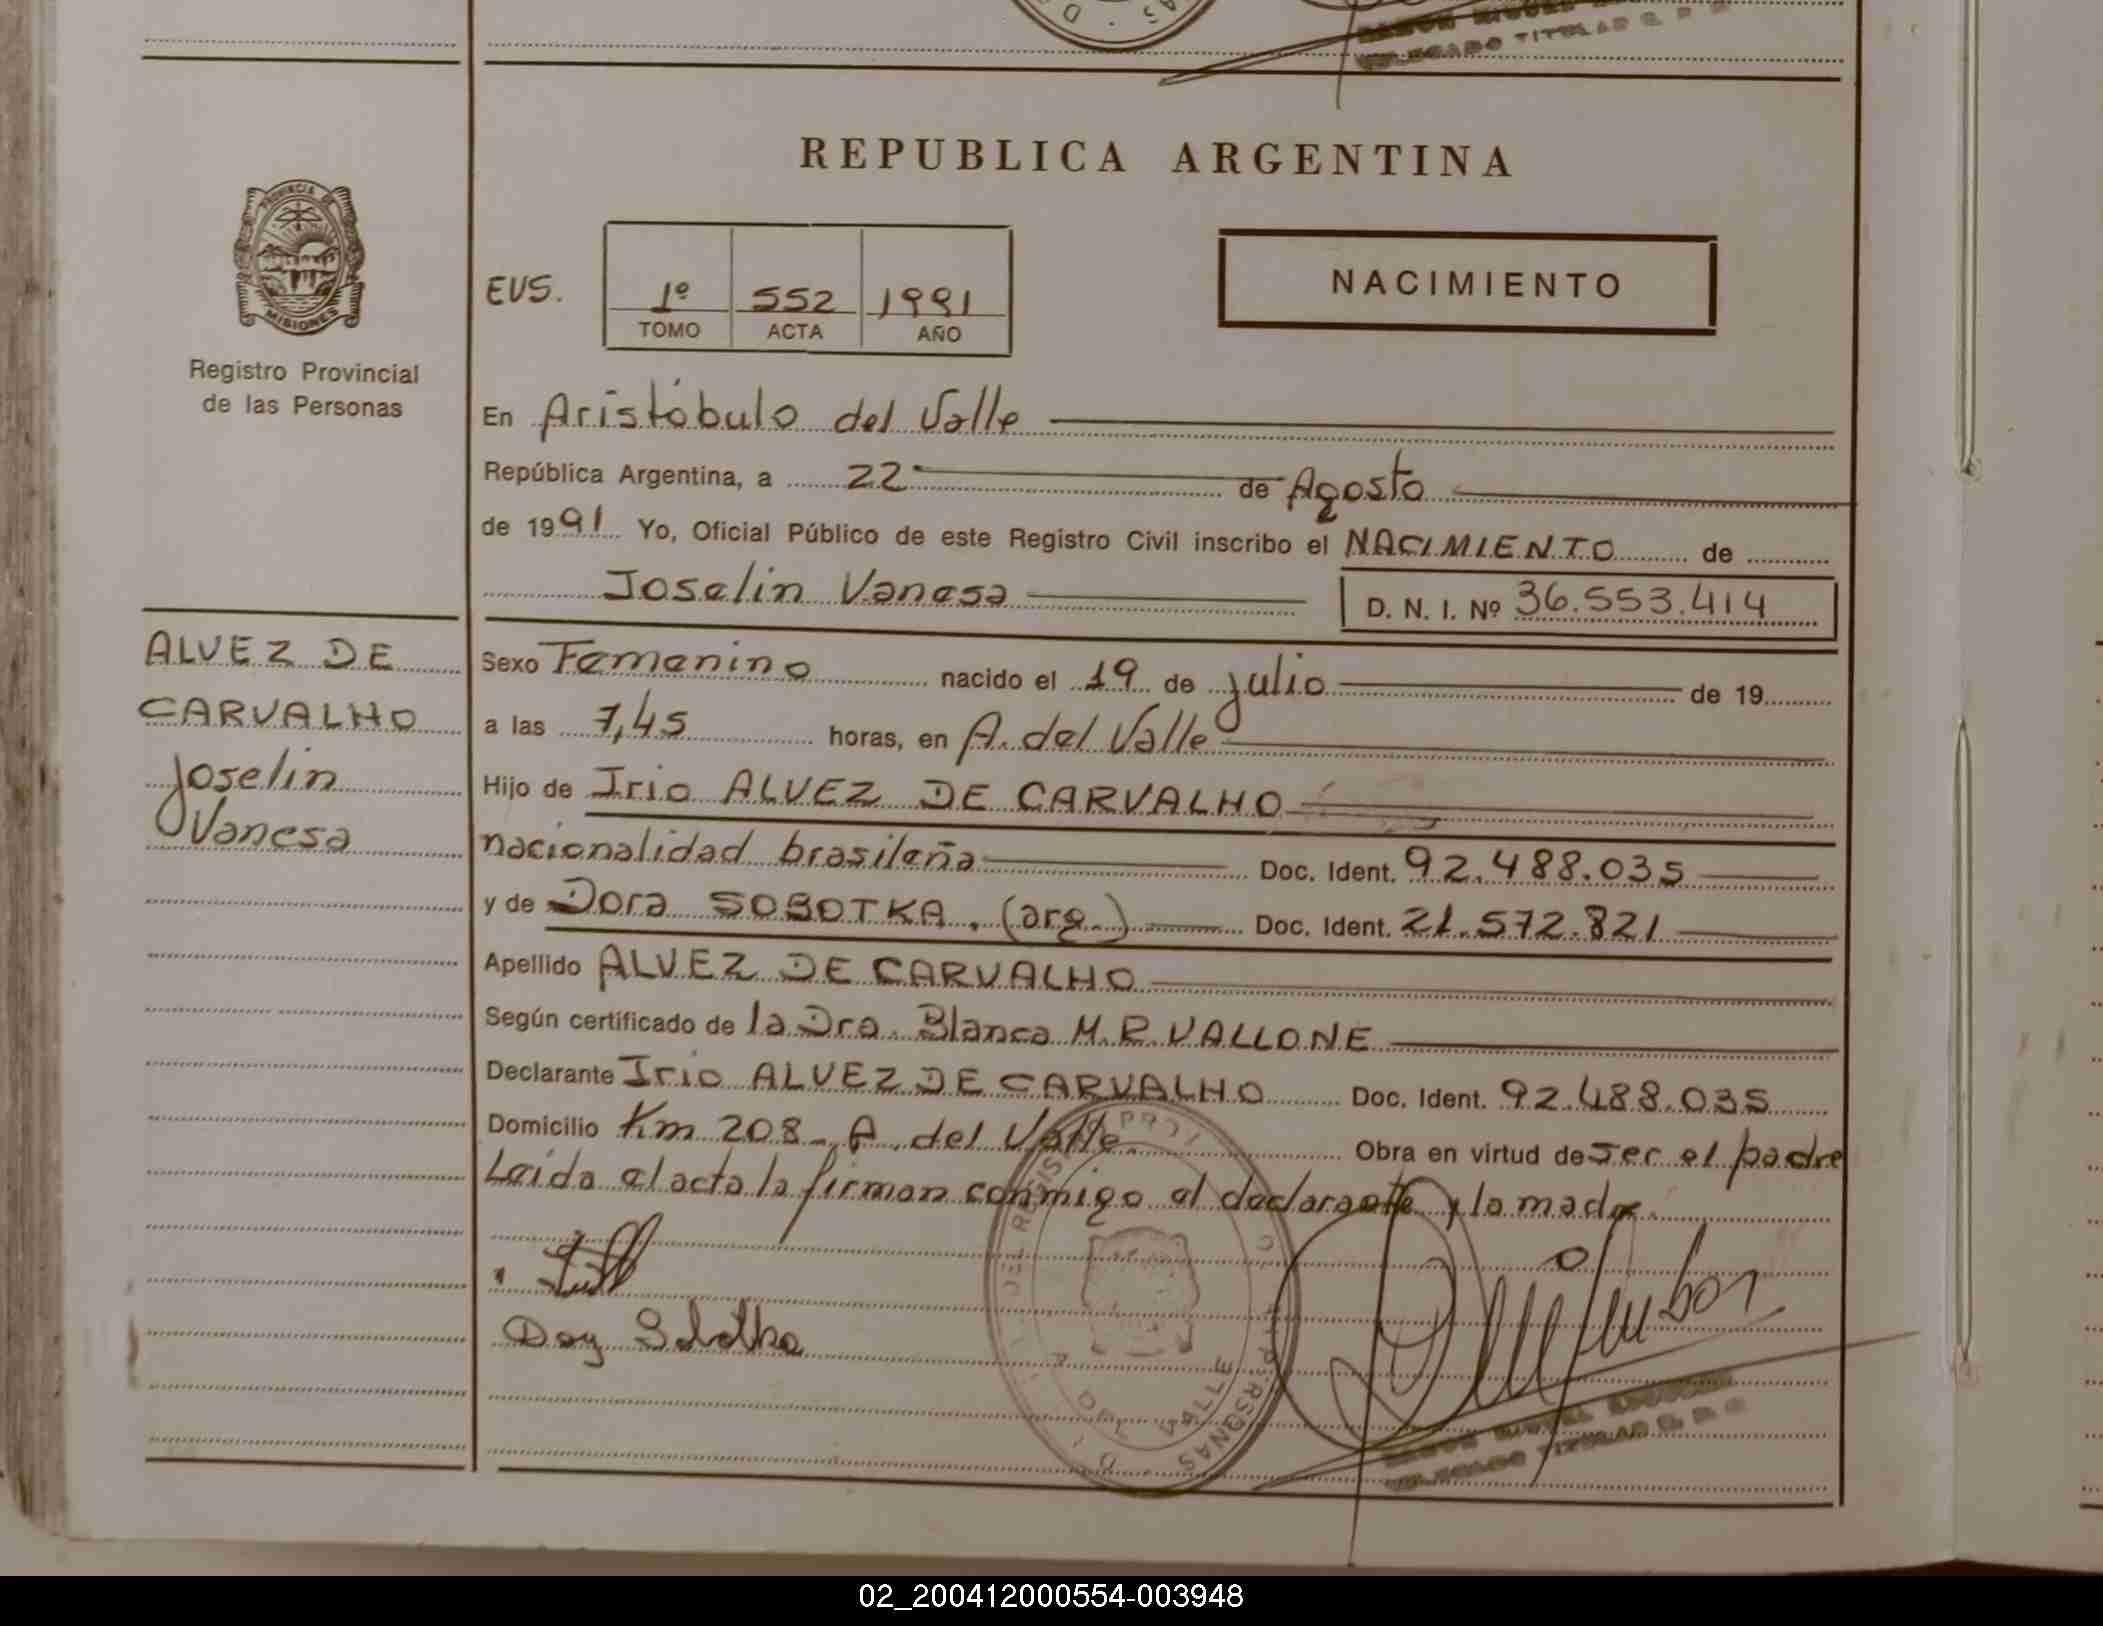 REPUBLICA ARGENTINA
PROVINCIA DE
MISIONES
Registro Provincial
de las Personas
EVS.
1º 552 1991
TOMO ACTA AÑO
NACIMIENTO
En Aristóbulo del Valle
República Argentina, a 22 de Agosto
de 1991 Yo, Oficial Público de este Registro Civil inscribo el NACIMIENTO de
Joselin Vanesa D. N. I. Nº 36.553.414
ALVEZ DE
CARVALHO
Joselin
Vanesa
Sexo Femenino nacido el 19 de julio de 19
a las 7,45 horas, en A. del Valle
Hijo de Irio ALVEZ DE CARVALHO
nacionalidad brasileña Doc. Ident. 92.488.035
y de Dora SOBOTKA. (arg.) Doc. Ident. 21.572.821
Apellido ALVEZ DE CARVALHO
Según certificado de la Dra. Blanca M.R. VALLONE
Declarante Irio ALVEZ DE CARVALHO Doc. Ident. 92.488.035
Domicilio Km 208 - A. del Valle. Obra en virtud de ser el padre
Leída el acta la firman conmigo el declarante y la madre.
TITULAR
02_200412000554-003948